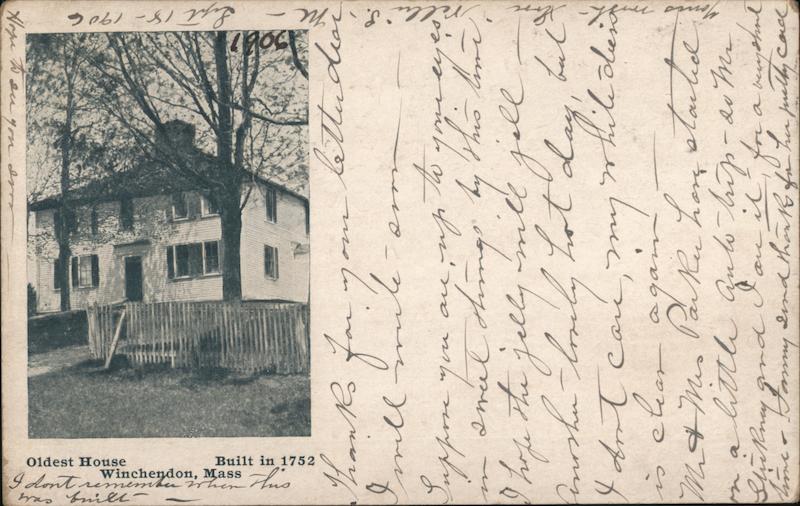 Sept 18-1906
1906
Oldest House Built in 1752
Winchendon, Mass
I dont remember when this
was built —
Thanks for your letter dear
I will write soon —
Suppose you are, up to your eyes
in sweet things by this time
I hope the jelly will jell —
Another lovely hot day, but
I dont care, my white dress
is clear again —
Mr & Mrs Parker have started
on a little auto trip - so Mr
and I are it, for a very short
time - Fanny send thanks for her pretty card
Yours with Love
Nellie S. M —
Hope to see you soon